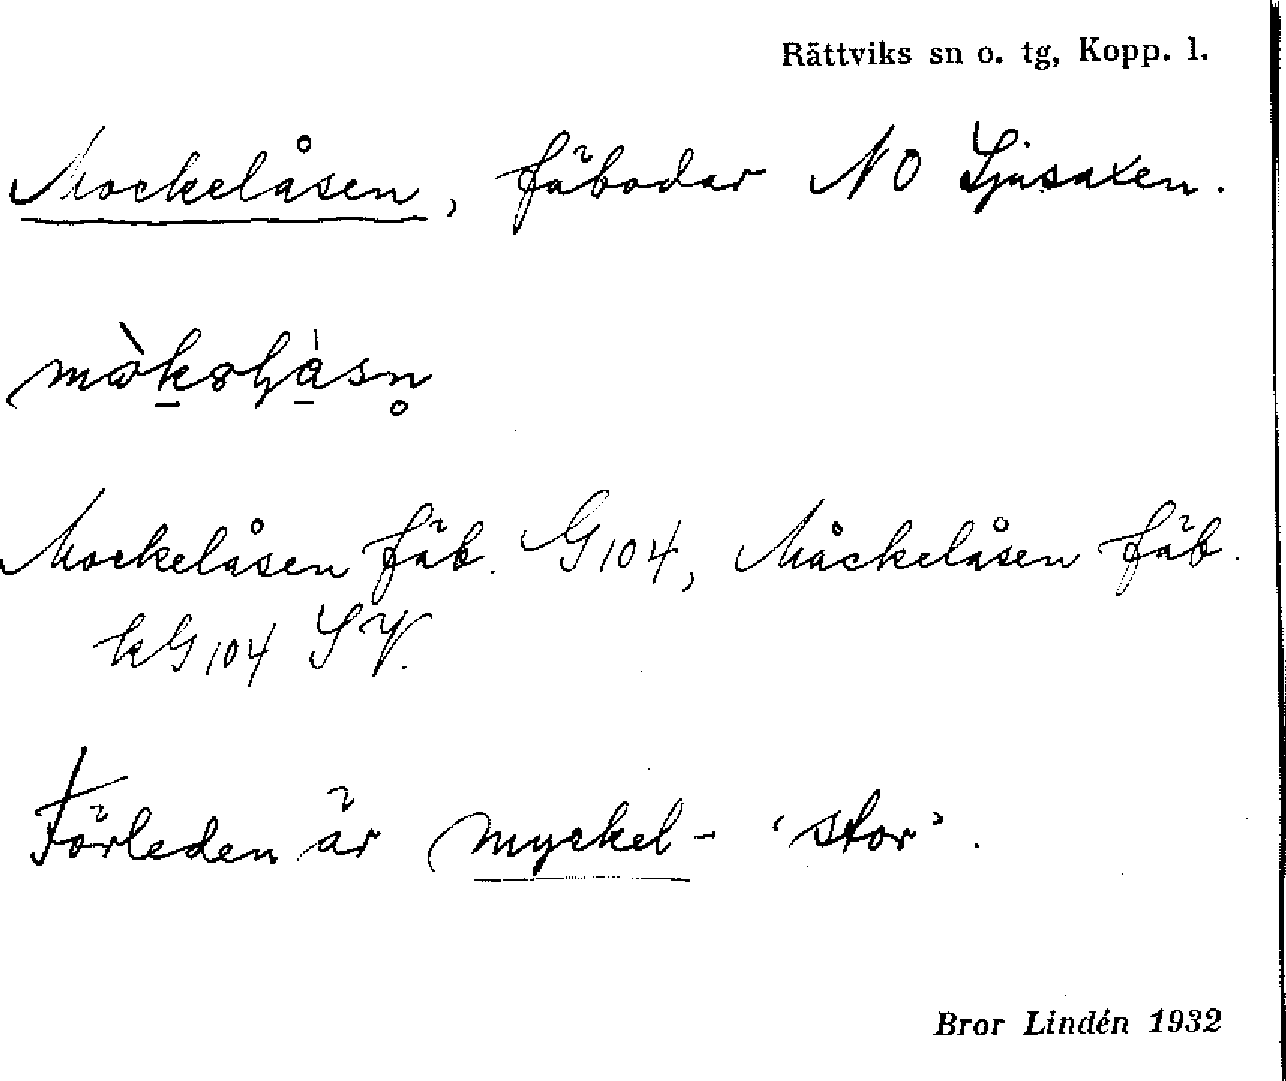 Rättviks sn o. tg, Kopp. l.
Mockelåsen, fäbodar NO Ljusaxen.
Mockelåsen fäb. G104, Måckelåsen fäb.
kG104 SV.
Förleden är myckel- 'stor'.
Bror Lindén 1932